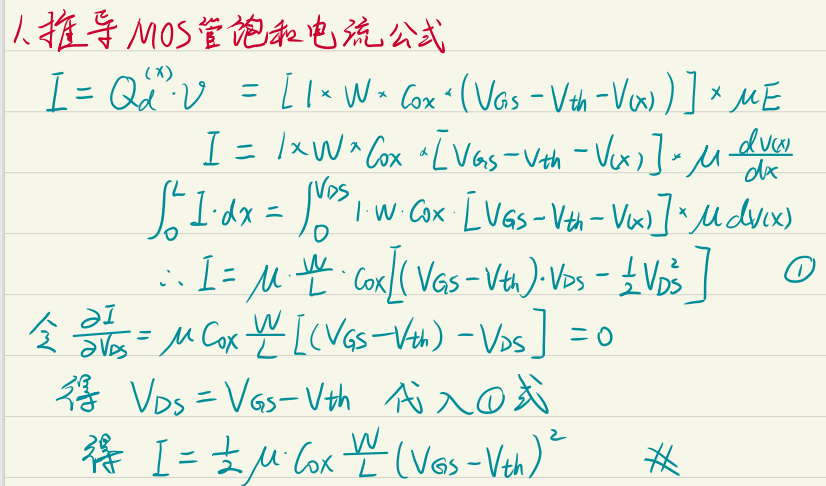 1. 推导MOS管饱和电流公式
I = Qd(x)·v = [1×W×Cox×(VGS−Vth−V(x))]×μE
I = 1×W×Cox×[VGS−Vth−V(x)]×μ dV(x)/dx
∫₀ᴸ I·dx = ∫₀^VDS 1·W·Cox·[VGS−Vth−V(x)]×μdV(x)
∴ I = μ·W/L·Cox[(VGS−Vth)·VDS − ½VDS²] ①
令 ∂I/∂VDS = μCox W/L [(VGS−Vth)−VDS] = 0
得 VDS = VGS−Vth 代入①式
得 I = ½μ·Cox W/L (VGS−Vth)² #